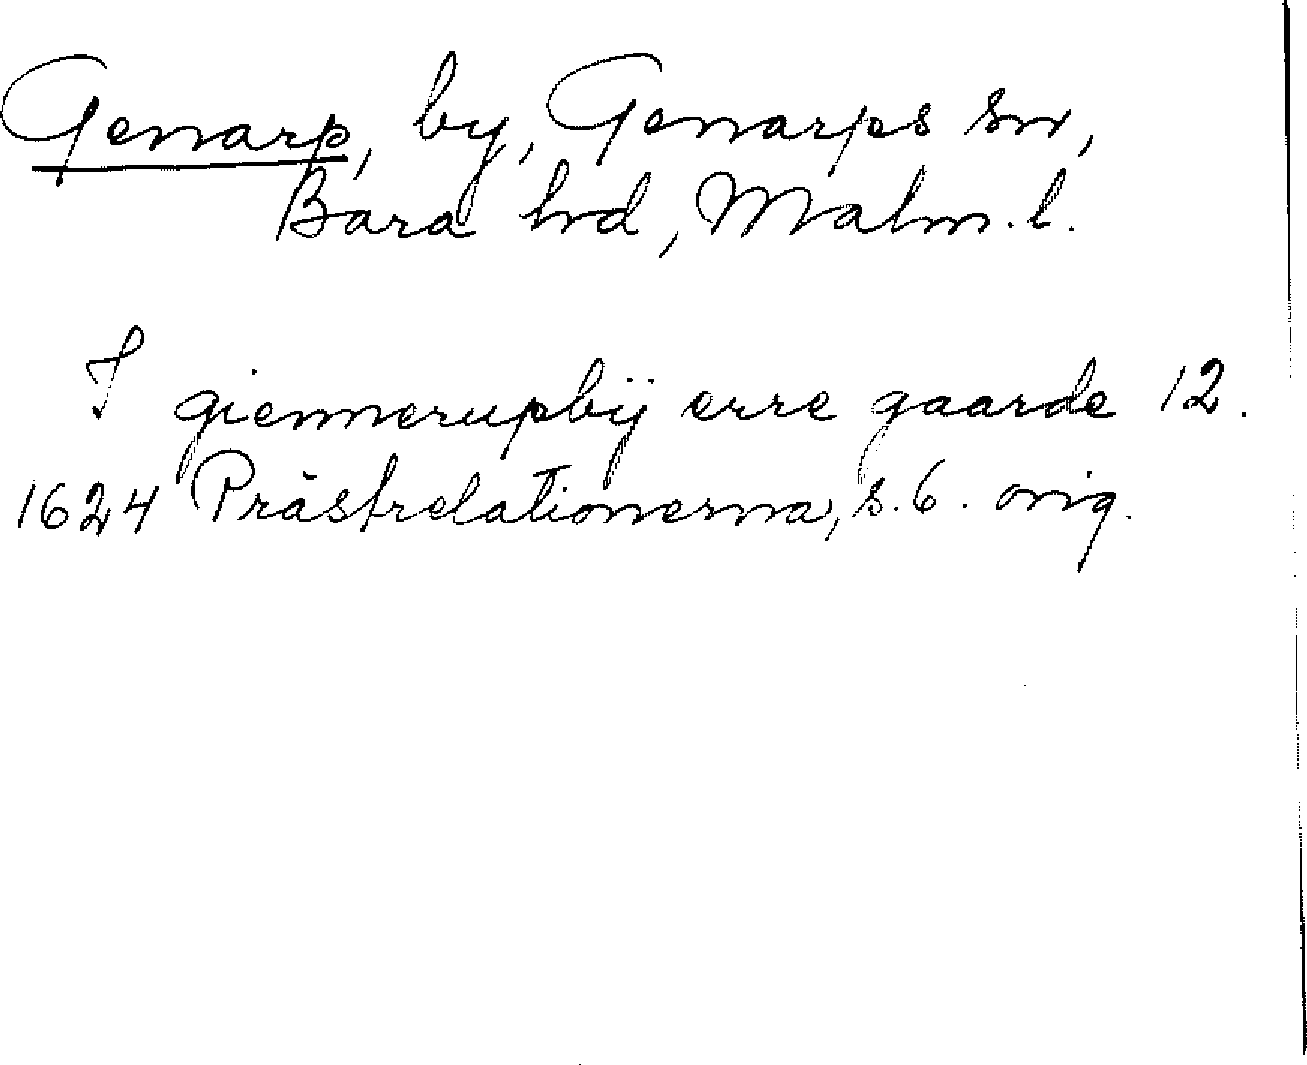 Genarp, by, Genarps sn,
Bara hd, Malm. l.
I giennerupbÿ erre gaarde 12.
1624 Prästrelationerna, s. 6. orig.